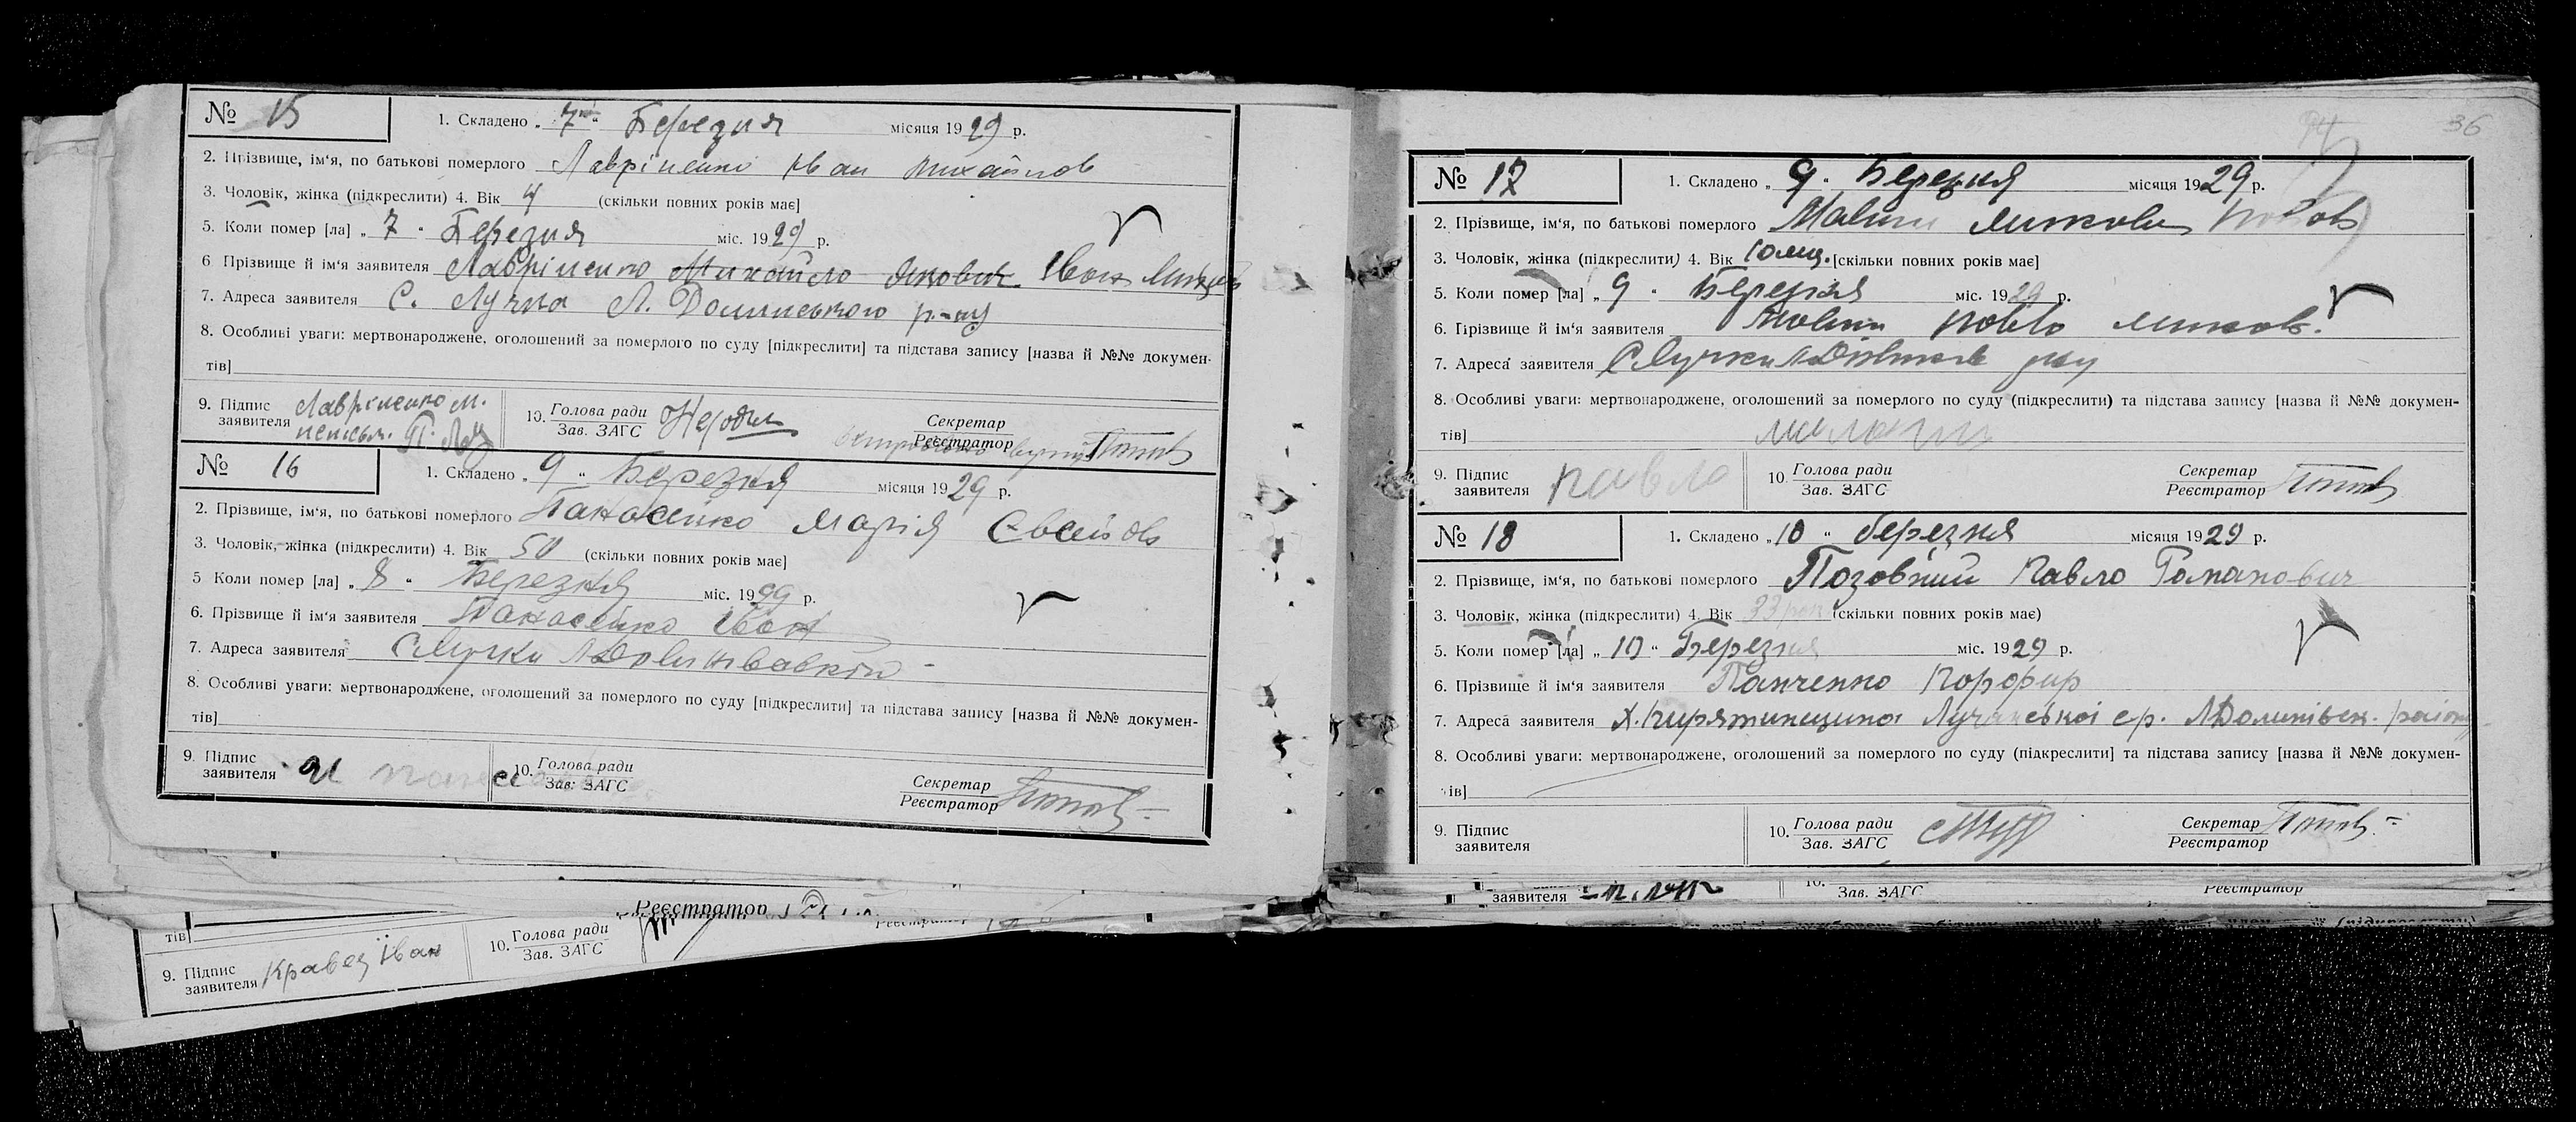 № 15
1. Складено „ 7 " Березня місяця 1929 р.
2. Прізвище, ім'я, по батькові померлого Лавріненко Иван Михайлов
3. Чоловік, жінка (підкреслити) 4. Вік 4 (скільки повних років має]
5. Коли помер [ла] „ 7 " Березня міс. 1929 р.
6 Прізвище й ім'я заявителя Лавріненко Михайло Якович Іван
7. Адреса заявителя С. Лучка Л. Долинського р-ну
8. Особливі уваги: мертвонароджене, оголошений за померлого по суду [підкреслити] та підстава запису [назва й №№ докумен-
тів]
9. Підпис заявителя Лавріненко М.
неписьм.
10. Голова ради
Зав. ЗАГС
Секретар
Реєстратор
№ 16
1. Складено „ 9 " Березня місяця 1929 р.
2. Прізвище, ім'я, по батькові померлого Панасенко Марія Євсейов
3. Чоловік, жінка (підкреслити) 4. Вік 50 (скільки повних років має]
5 Коли помер [ла] „ 8 " Березня міс. 1929 р.
6. Прізвище й ім'я заявителя Панасенко Іван
7. Адреса заявителя С Лучки
8. Особливі уваги: мертвонароджене, оголошений за померлого по суду [підкреслити] та підстава запису [назва й №№ докумен-
тів]
9. Підпис заявителя И
10. Голова ради
Зав. ЗАГС
Секретар
Реєстратор
тів]
Реєстратор
9. Підпис заявителя Кравец Іван
10. Голова ради
Зав. ЗАГС
36
№ 17
1. Складено „ 9 " Березня місяця 1929 р.
2. Прізвище, ім'я, по батькові померлого
3. Чоловік, жінка (підкреслити) 4. Вік 10 міц. [скільки повних років має]
5. Коли помер [ла] „ 9 " Березня міс. 1929 р.
6. Прізвище й ім'я заявителя Павло
7. Адреса заявителя С Лучки
8. Особливі уваги: мертвонароджене, оголошений за померлого по суду (підкреслити) та підстава запису [назва й №№ докумен-
тів]
9. Підпис заявителя павло
10. Голова ради
Зав. ЗАГС
Секретар
Реєстратор
№ 18
1. Складено „ 10 " березня місяця 1929 р.
2. Прізвище, ім'я, по батькові померлого Позовний Павло Романович
3. Чоловік, жінка (підкреслити) 4. Вік 33 рок. (скільки повних років має)
5. Коли помер [ла] „ 10 " Березня міс. 1929 р.
6. Прізвище й ім'я заявителя Панченко Порфир
7. Адреса заявителя Х. Пирятинщина Лучанської с-р. Л Долинівськ. району
8. Особливі уваги: мертвонароджене, оголошений за померлого по суду (підкреслити] та підстава запису [назва й №№ докумен-
тів]
9. Підпис заявителя
10. Голова ради
Зав. ЗАГС
Секретар
Реєстратор
заявителя
10.
Зав. ЗАГС
Реєстратор